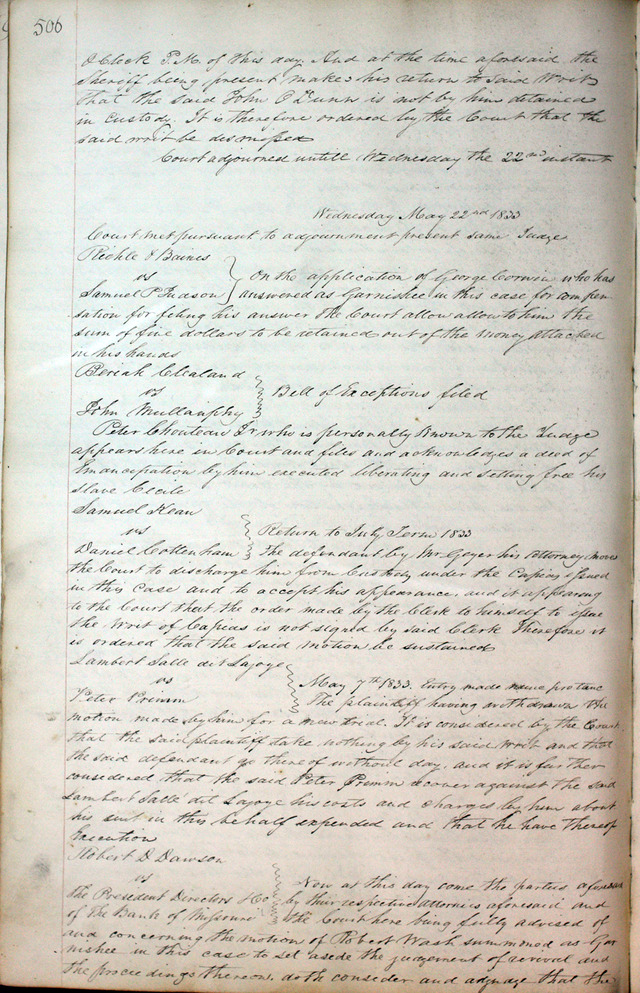 506
O Clock P.M. of this day. And at the time aforesaid the
Sheriff being present makes his return to said Writ
that the said John O Dunn is not by him detained
in custody. It is therefore ordered by the Court that the
said writ be dismissed
Court adjourned untill Wednesday the 22nd instant
Wednesday May 22nd 1833
Court met pursuant to adjournment present same Judge
Riehle & Baines
vs
On the application of George Corwin who has
Samuel P Judson
answered as Garnishee in this case for compen
sation for filing his answer the Court allow allow to him the
sum of five dollars to be retained out of the money attached
in his hands
Beriah Clealand
vs
Bill of Exceptions filed
John Mullanphy
Peter Chouteau Jr who is personally Known to the Judge
appears here in Court and files and acknowledges a deed of
Emancipation by him executed liberating and setting free his
slave Cecile
Samuel Kean
vs
Return to July Term 1833
Daniel Cottenham
The defendant by Mr Geyer his attorney moves
the Court to discharge him from Custody under the Capias issued
in this case and to accept his appearance, and it appearing
to the Court that the order made by the Clerk to himself to issue
the Writ of Capias is not signed by said Clerk Therefore it
is ordered that the said motion be sustained
Lambert Salle dit Lajoye
vs
May 7th 1833. Entry made nunc pro tunc
Peter Primm
The plaintiff having withdrawn the
motion made by him for a new trial. It is considered by the Court
that the said plaintiff take nothing by his said writ and that
the said defendant go thereof without day, and it is further
considered that the said Peter Primm recover against the said
Lambert Salle dit Lajoye his costs and charges by him about
his suit in this behalf expended and that he have thereof
Execution
Robert D. Dawson
vs
Now at this day come the parties aforesaid
the President Directors & Co
by their respective attornies aforesaid and
of the Bank of Missouri
the Court here being fully advised of
and concerning the motion of Robert Wash summoned as Gar
nishee in this case to set aside the judgement of revival and
the proceedings thereon, doth consider and adjudge that the